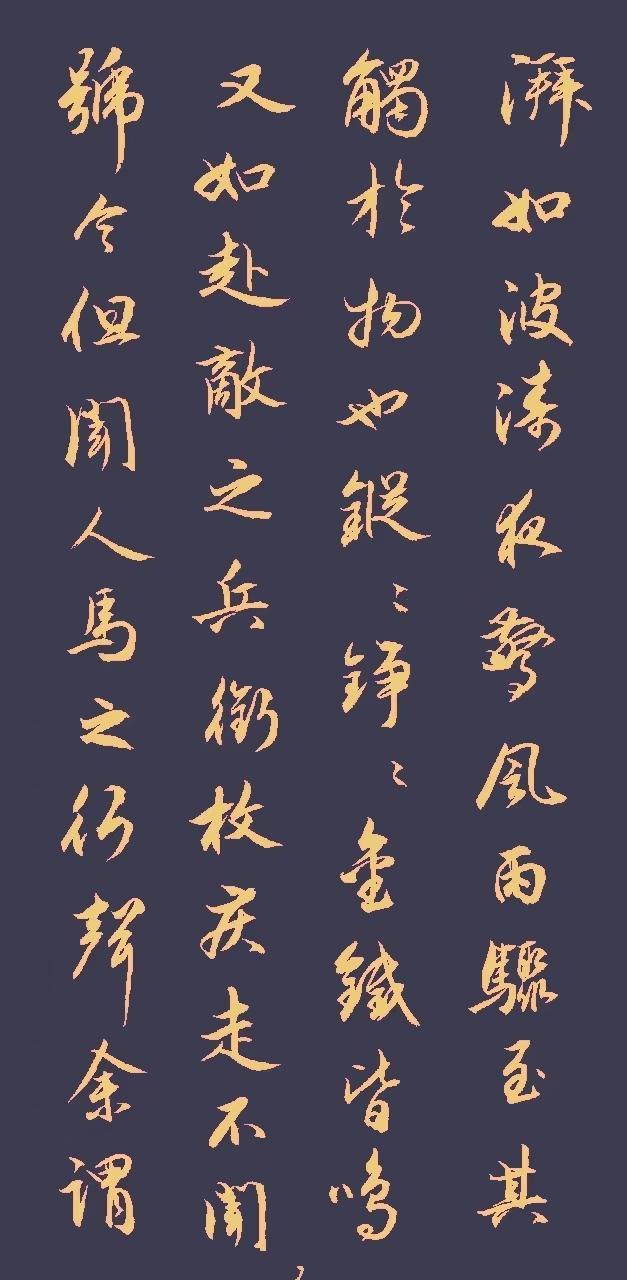 湃如波涛夜驚風雨驟至其
觸於物也鏦〻錚〻金鐵皆鳴
又如赴敵之兵銜枚疾走不聞
號令但聞人馬之行聲余謂